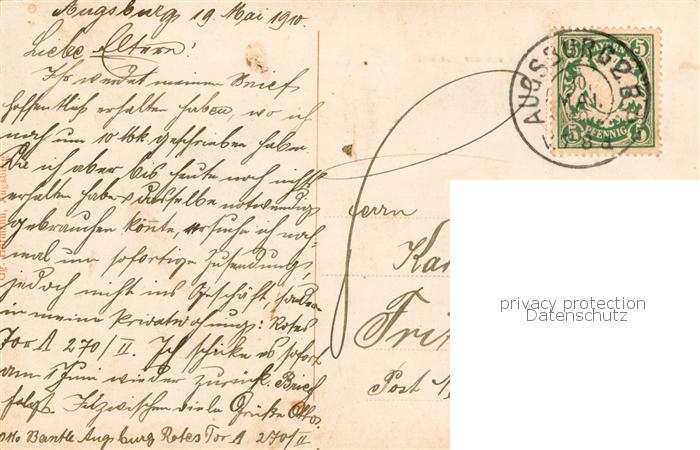 Augsburg 19. Mai 1910.
Liebe Eltern!
Ihr werdet meinen Brief
hoffentlich erhalten haben, wo ich
noch um 10 Mk. geschrieben habe.
Die ich aber bis heute noch nicht
erhalten habe u. dieselbe notwendig
gebrauchen könnte, ersuche ich noch-
mal um sofortige Zusendung,
jedoch nicht ins Geschäft, sondern
in meine Privatwohnung: Rotes
Tor A 270/II. Ich schicke es sofort
am 1 Juni wieder zurück. Brief
folgt. Inzwischen viele Grüße Otto.
Otto Bantle Augsburg Rotes Tor A 270/II
AUGSBURG 2. B
MAI
5 5
5 PFENNIG 5
Herrn
Kar
Frit
Post
privacy protection
Datenschutz